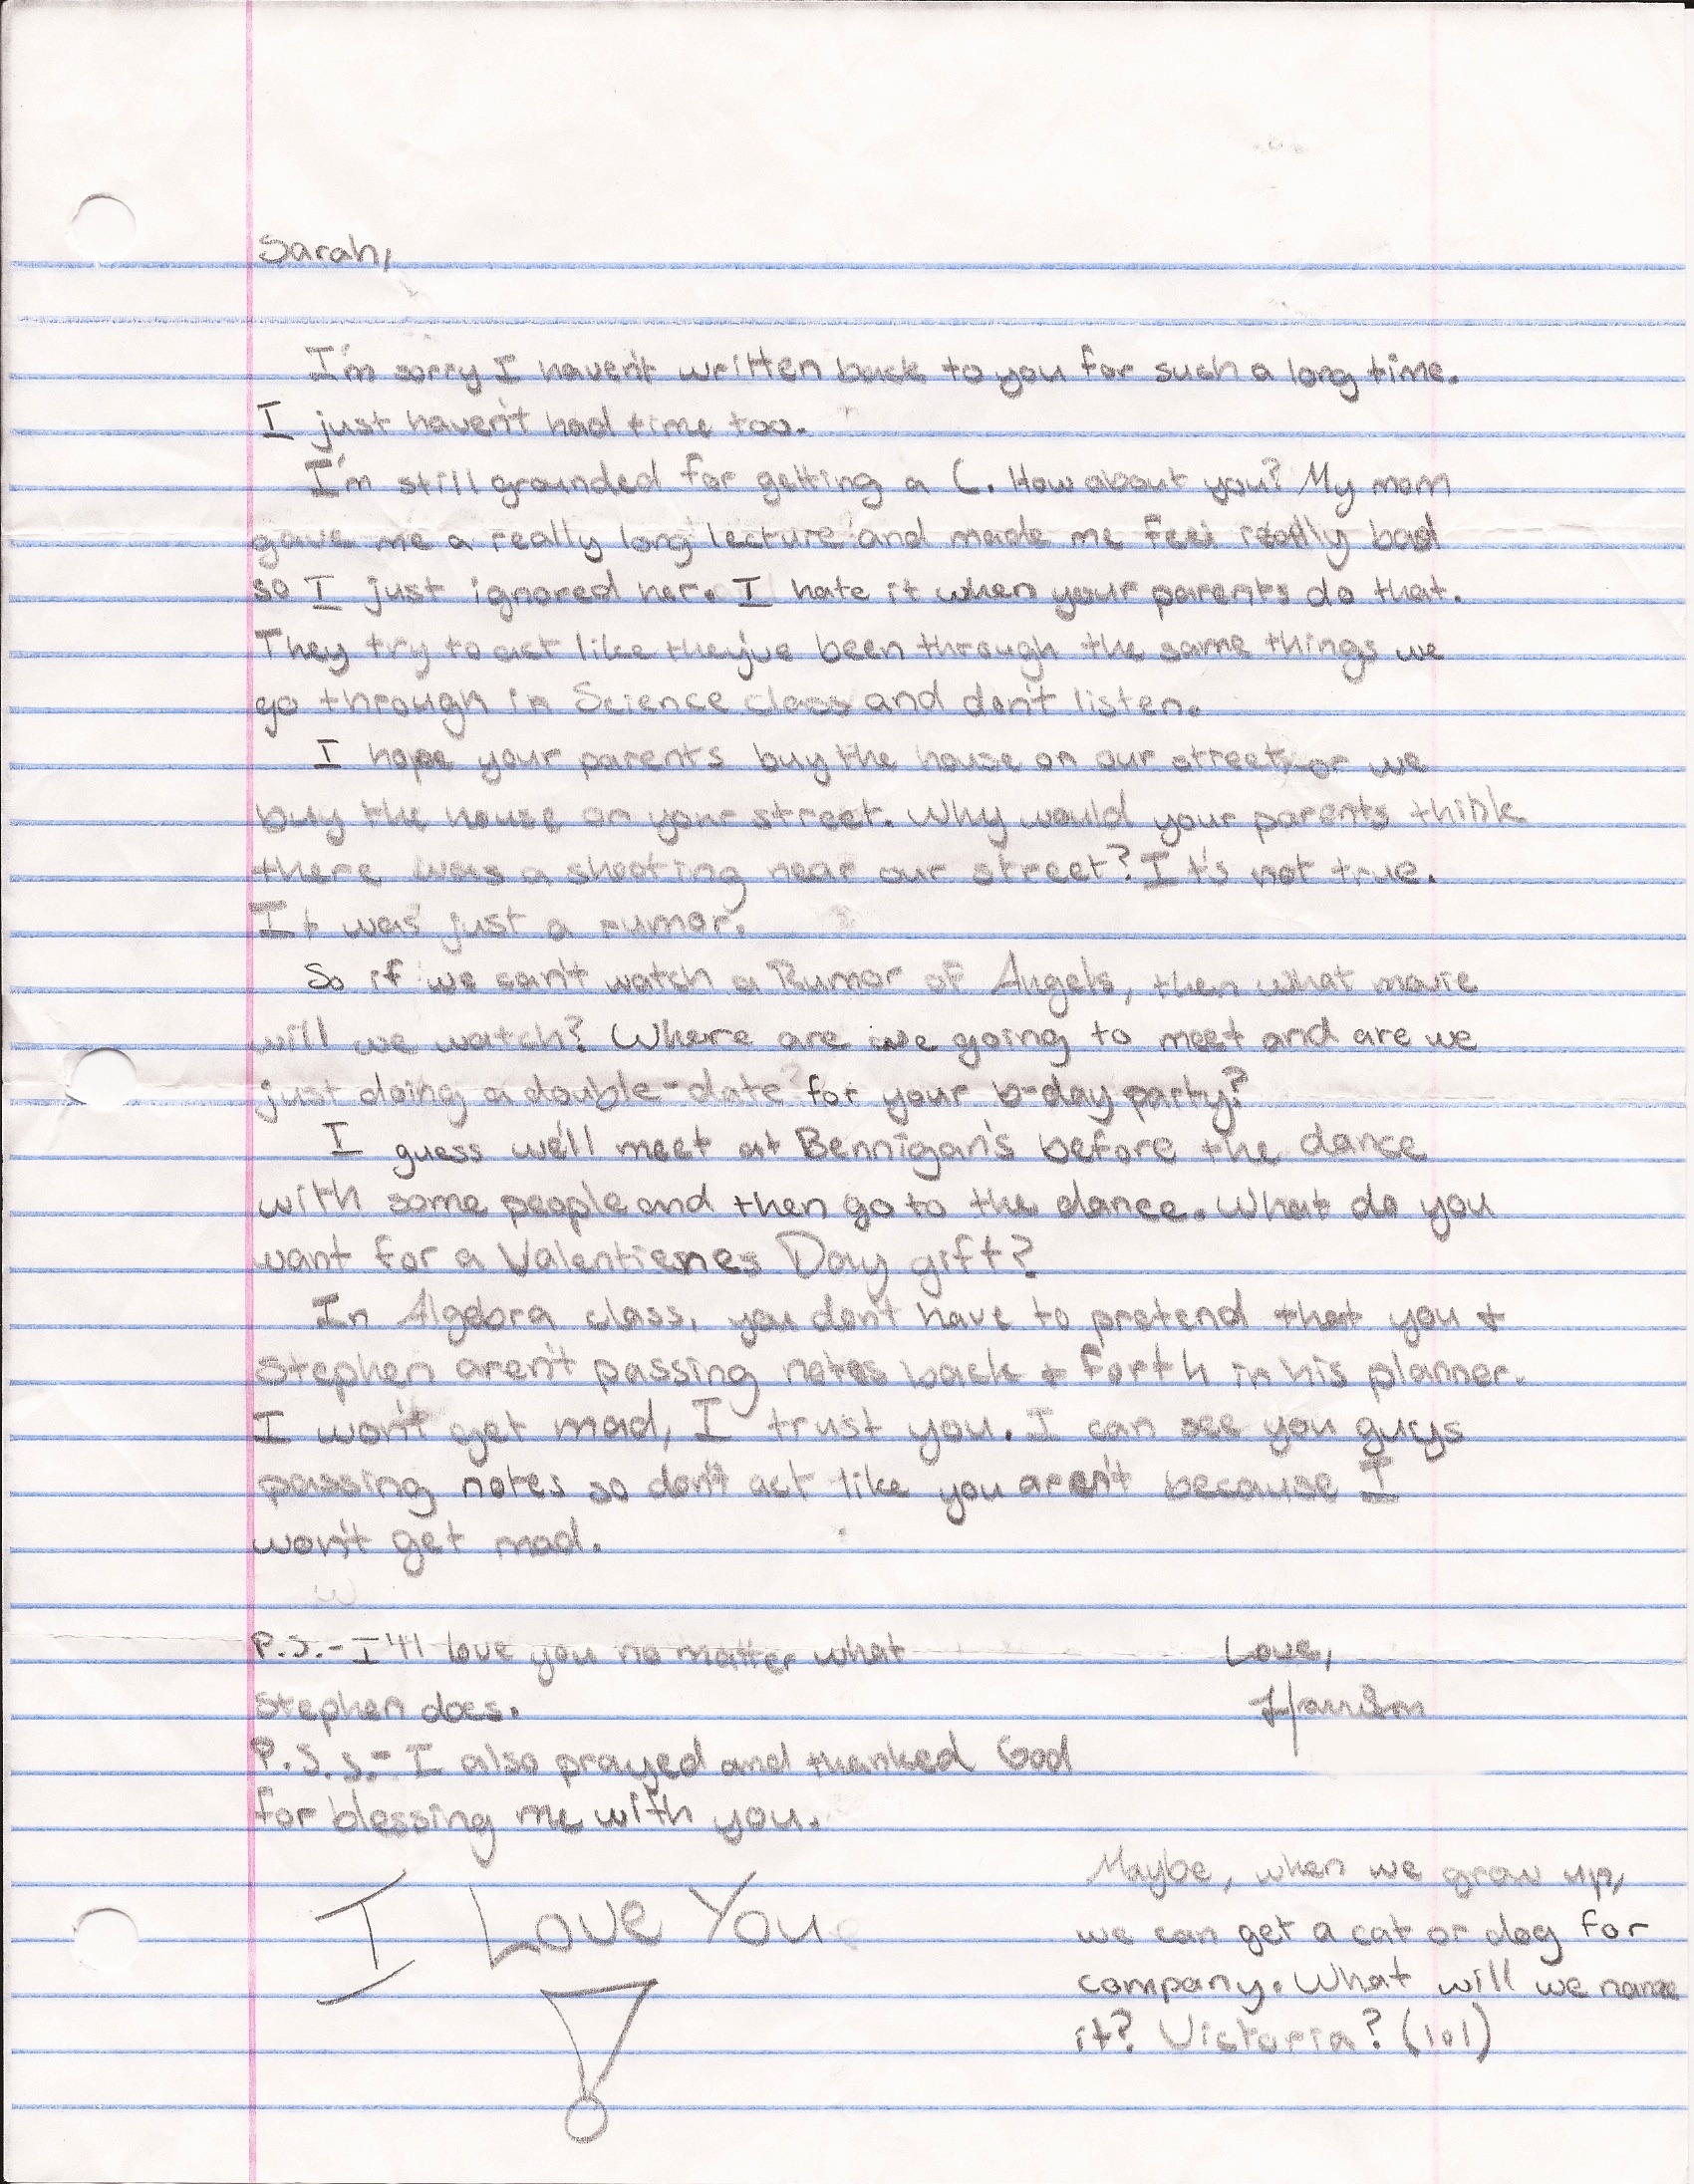 Sarah,
I'm sorry I haven't written back to you for such a long time.
I just haven't had time too.
I'm still grounded for getting a C. How about you? My mom
gave me a really long lecture and made me feel really bad
so I just ignored her. I hate it when your parents do that.
They try to act like they've been through the same things we
go through in Science class and don't listen.
I hope your parents buy the house on our street or we
buy the house on your street. Why would your parents think
there was a shooting near our street? It's not true.
It was just a rumor.
So if we can't watch a Rumor of Angels, then what movie
will we watch? Where are we going to meet and are we
just doing a double-date for your b-day party?
I guess we'll meet at Bennigan's before the dance
with some people and then go to the dance. What do you
want for a Valentienes Day gift?
In Algebra class, you don't have to pretend that you +
Stephen aren't passing notes back + forth in his planner.
I won't get mad, I trust you. I can see you guys
passing notes so don't act like you aren't because I
won't get mad.
P.S.- I'll love you no matter what
Stephen does.
Love,
Harrison
P.S.S.- I also prayed and thanked God
for blessing me with you.
I Love You!
Maybe, when we grow up,
we can get a cat or dog for
company. What will we name
it? Victoria? (lol)